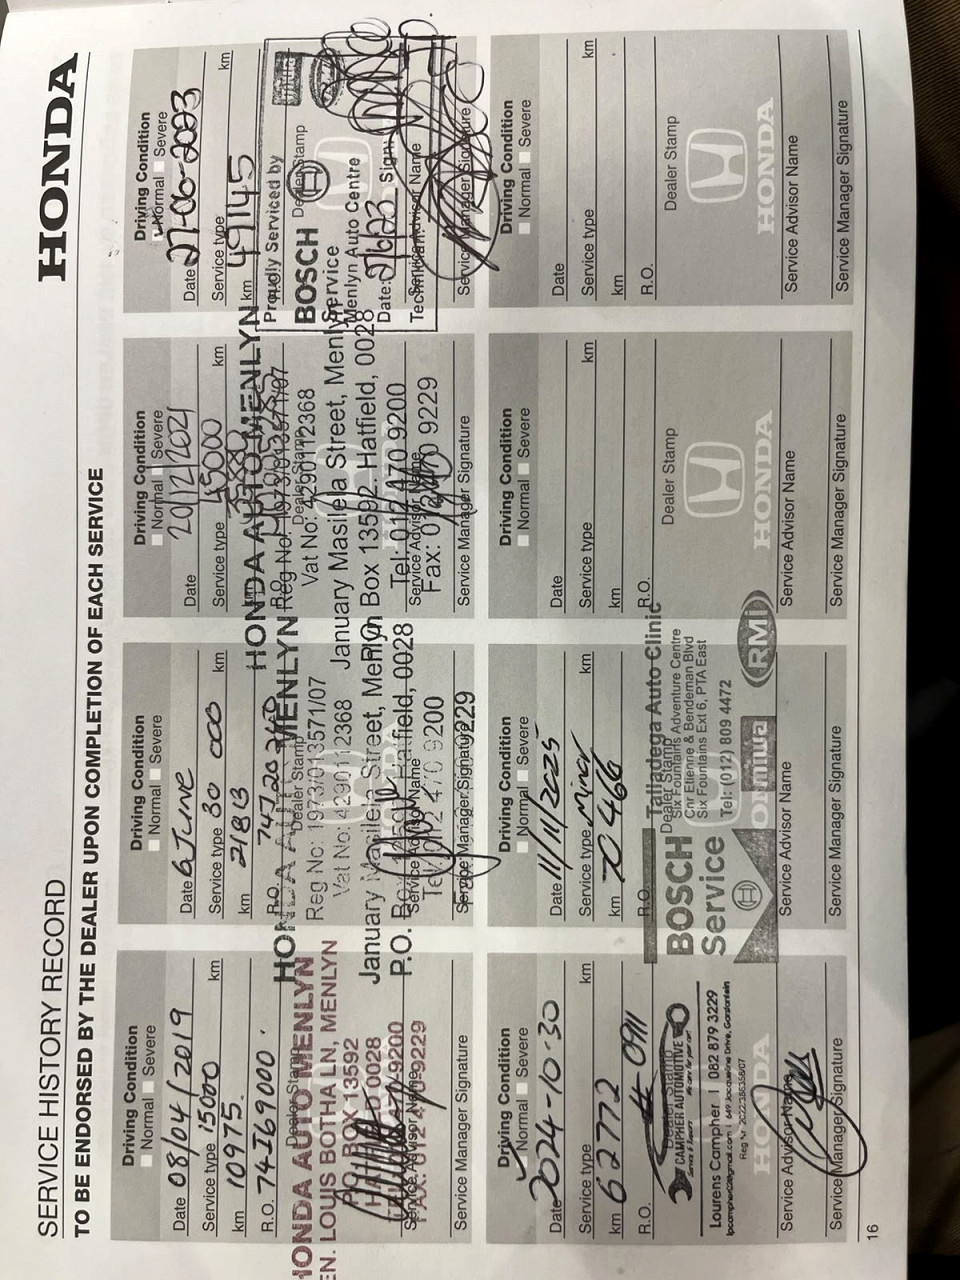 SERVICE HISTORY RECORD
HONDA
TO BE ENDORSED BY THE DEALER UPON COMPLETION OF EACH SERVICE
Driving Condition
Normal Severe
Date 08/04/2019
Service type 15000 km
km 10975
R.O. 74169000
Dealer Stamp
HONDA AUTO MENLYN
EN. LOUIS BOTHA LN, MENLYN
PO BOX 13592
0028
9200
FAX: 012 470 9229
Service Advisor Name
Service Manager Signature
Driving Condition
Normal Severe
Date 6 June
Service type 30 000 km
km 21813
R.O.
Dealer Stamp
HONDA AUTO MENLYN
Reg No: 1973/013571/07
Vat No: 4290112368
January Masilela Street, Menlyn
P.O. Box 13592 Hatfield, 0028
Tel: 012 470 9200
9229
Service Advisor Name
Service Manager Signature
Driving Condition
Normal Severe
Date 20/12/2021
Service type 45000 km
R.O.
HONDA AUTO MENLYN
Reg No: 1973/013571/07
Dealer Stamp
Vat No: 4290112368
January Masilela Street, Menlyn
Box 13592 Hatfield, 0028
Tel: 012 470 9200
Service Advisor Name
Fax: 012 470 9229
Service Manager Signature
Driving Condition
Normal Severe
Date 27-06-2023
Service type km
km 49145
R.O.
Proudly Serviced by
BOSCH Dealer Stamp
Service
Menlyn Auto Centre
Date: 27/6/23 Sign:
Service Advisor Name
Technician:
Service Manager Signature
Driving Condition
Normal Severe
Date 2024-10-30
Service type km
km 62772
R.O. 0911
Dealer Stamp
CAMPHER AUTOMOTIVE
Lourens Campher | 082 879 3229
HONDA
Service Advisor Name
Service Manager Signature
Driving Condition
Normal Severe
Date 11/11/2025
Service type Minor km
km 70466
R.O.
Talladega Auto Clinic
Dealer Stamp
BOSCH
Service
Six Fountains Adventure Centre
Cnr Etienne & Bendeman Blvd
Six Fountains Ext 6, PTA East
Tel: (012) 809 4472
RMI
Service Advisor Name
Service Manager Signature
Driving Condition
Normal Severe
Date
Service type km
km
R.O.
Dealer Stamp
HONDA
Service Advisor Name
Service Manager Signature
Driving Condition
Normal Severe
Date
Service type km
km
R.O.
Dealer Stamp
HONDA
Service Advisor Name
Service Manager Signature
16